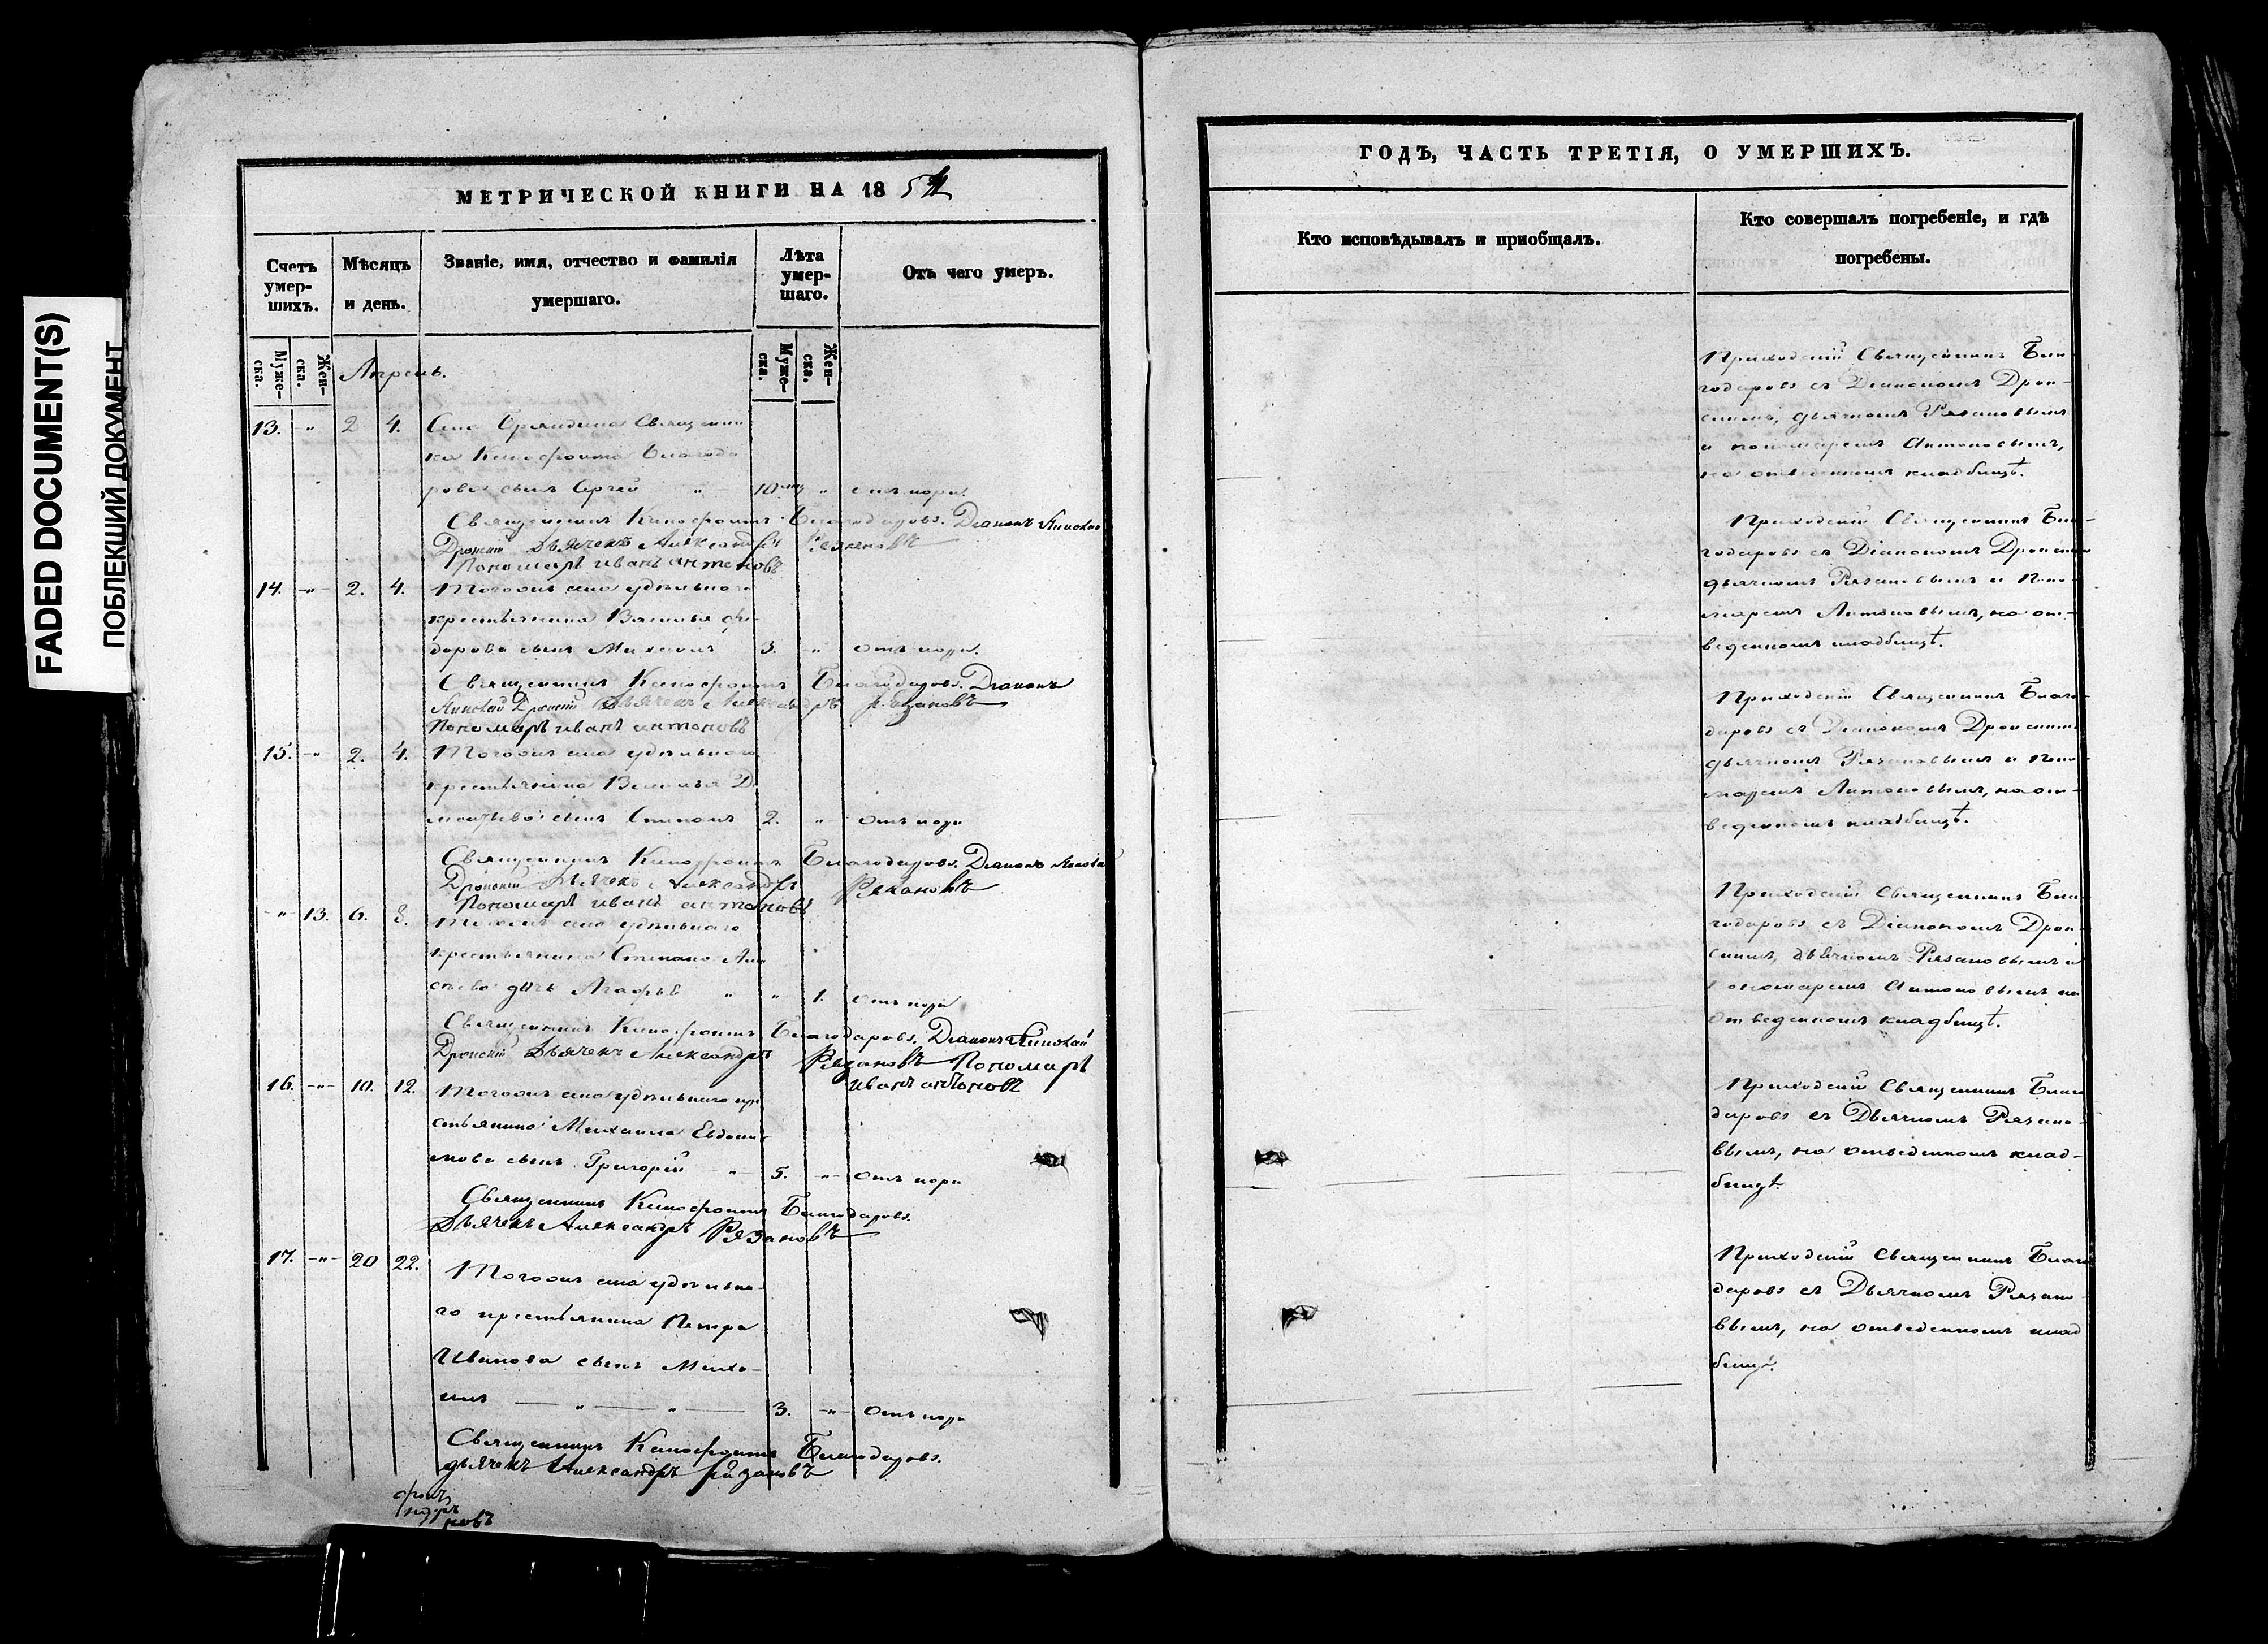 FADED DOCUMENT(S)
ПОБЛЕКШИЙ ДОКУМЕНТ
МЕТРИЧЕСКОЙ КНИГИ НА 1854
Счетъ умер-шихъ.
Мѣсяцъ и день.
Званіе, имя, отчество и фамилія умершаго.
Лѣта умер-шаго.
Отъ чего умеръ.
Муже-ска.
Жен-ска.
Муже-ска.
Жен-ска.
Апрель.
13. " 2 4. Села Священни
ка Ксенофонта Благода
рова сынъ Сергей " 10 " отъ кори.
Священникъ Ксенофонтъ Благодаровъ. Діаконъ Николай
Дронскій Дьячекъ Александръ Рязановъ
Пономарь Иванъ Антоновъ
14. " 2. 4. Тогожъ села удѣльнаго
крестьянина Василья Фе
дорова сынъ Михаилъ 3. " отъ кори.
Священникъ Ксенофонтъ Благодаровъ. Діаконъ
Николай Дронскій Дьячекъ Александръ Рязановъ
Пономарь Иванъ Антоновъ
15. " 2. 4. Тогожъ села удѣльнаго
крестьянина Василья Д
сынъ Степанъ 2. " отъ кори
Священникъ Ксенофонтъ Благодаровъ. Діаконъ Николай
Дронскій Дьячекъ Александръ Рязановъ
Пономарь Иванъ Антоновъ
" 13. 6. 8. Тогожъ села удѣльнаго
крестьянина Степана
дочь Агафья " " 1. отъ кори
Священникъ Ксенофонтъ Благодаровъ. Діаконъ Николай
Дронскій Дьячекъ Александръ Рязановъ Пономарь
Иванъ Антоновъ
16. " 10. 12. Тогожъ села удѣльнаго кре
стьянина Михаила Евдоки
мова сынъ Григорій " 5. " отъ кори
Священникъ Ксенофонтъ Благодаровъ.
Дьячекъ Александръ Рязановъ
17. " 20 22. Тогожъ села удѣльна-
го крестьянина Петра
Иванова сынъ Миха-
илъ " " 3. " отъ кори
Священникъ Ксенофонтъ Благодаровъ.
дьячекъ Александръ Рязановъ
ГОДЪ, ЧАСТЬ ТРЕТІЯ, О УМЕРШИХЪ.
Кто исповѣдывалъ и пріобщалъ.
Кто совершалъ погребеніе, и гдѣ погребены.
Приходскій Священникъ Бла
годаровъ съ Діакономъ Дрон-
скимъ, дьячкомъ Рязановымъ
и пономаремъ Антоновымъ,
на отведенномъ кладбищѣ.
Приходскій Священникъ Бла-
годаровъ съ Діакономъ Дронскимъ
дьячкомъ Рязановымъ и Поно-
маремъ Антоновымъ, на от-
веденномъ кладбищѣ.
Приходскій Священникъ Благо-
даровъ съ Діакономъ Дронскимъ
дьячкомъ Рязановымъ и Поно-
маремъ Антоновымъ, на от-
веденномъ кладбищѣ.
Приходскій Священникъ Бла
годаровъ съ Діакономъ Дрон-
скимъ, дьячкомъ Рязановымъ и
Пономаремъ Антоновымъ на
отведенномъ кладбищѣ.
Приходскій Священникъ Благо
даровъ съ Дьячкомъ Рязано-
вымъ, на отведенномъ клад-
бищѣ.
Приходскій Священникъ Благо
даровъ съ Дьячкомъ Рязано-
вымъ, на отведенномъ клад
бищѣ.